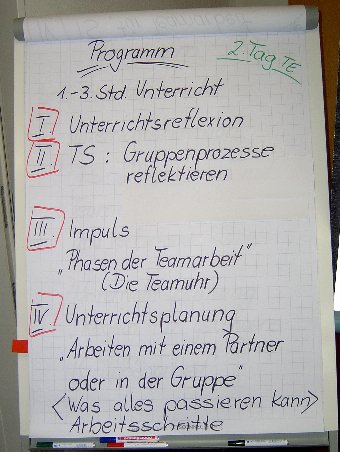 Programm
2. Tag TE
1.-3. Std. Unterricht
I Unterrichtsreflexion
II TS : Gruppenprozesse
reflektieren
III Impuls
„Phasen der Teamarbeit"
(Die Teamuhr)
IV Unterrichtsplanung
„Arbeiten mit einem Partner
oder in der Gruppe"
<Was alles passieren kann>
Arbeitsschritte